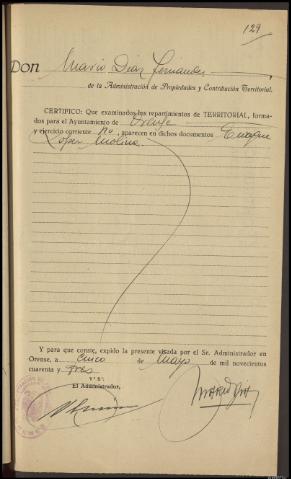 129
DON Mario Diaz Fernandez
de la Administración de Propiedades y Contribución Territorial.
CERTIFICO: Que examinados los repartimientos de TERRITORIAL, forma-
dos para el Ayuntamiento de Orense
y ejercicio corriente no aparecen en dichos documentos Enrique
Lopez Molina.
Y para que conste, expido la presente visada por el Sr. Administrador en
Orense, a cinco de Mayo de mil novecientos
cuarenta y tres
V.º B.º
El Administrador,